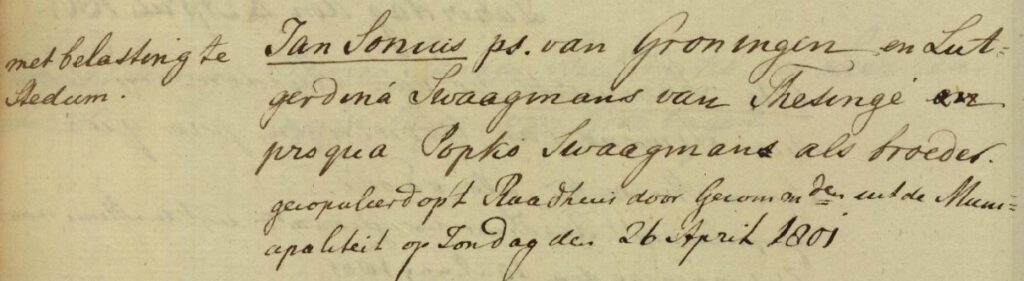 met belasting te
Stedum.
Jan Sonius ps. van Groningen en Lut=
gerdina Swaagmans van Thesinge en
pro qua Popko Swaagmans als broeder.
gecopulierd op't Raadhuis door Gecommden uit de Muni=
cipaliteit op Zondag den 26 April 1801